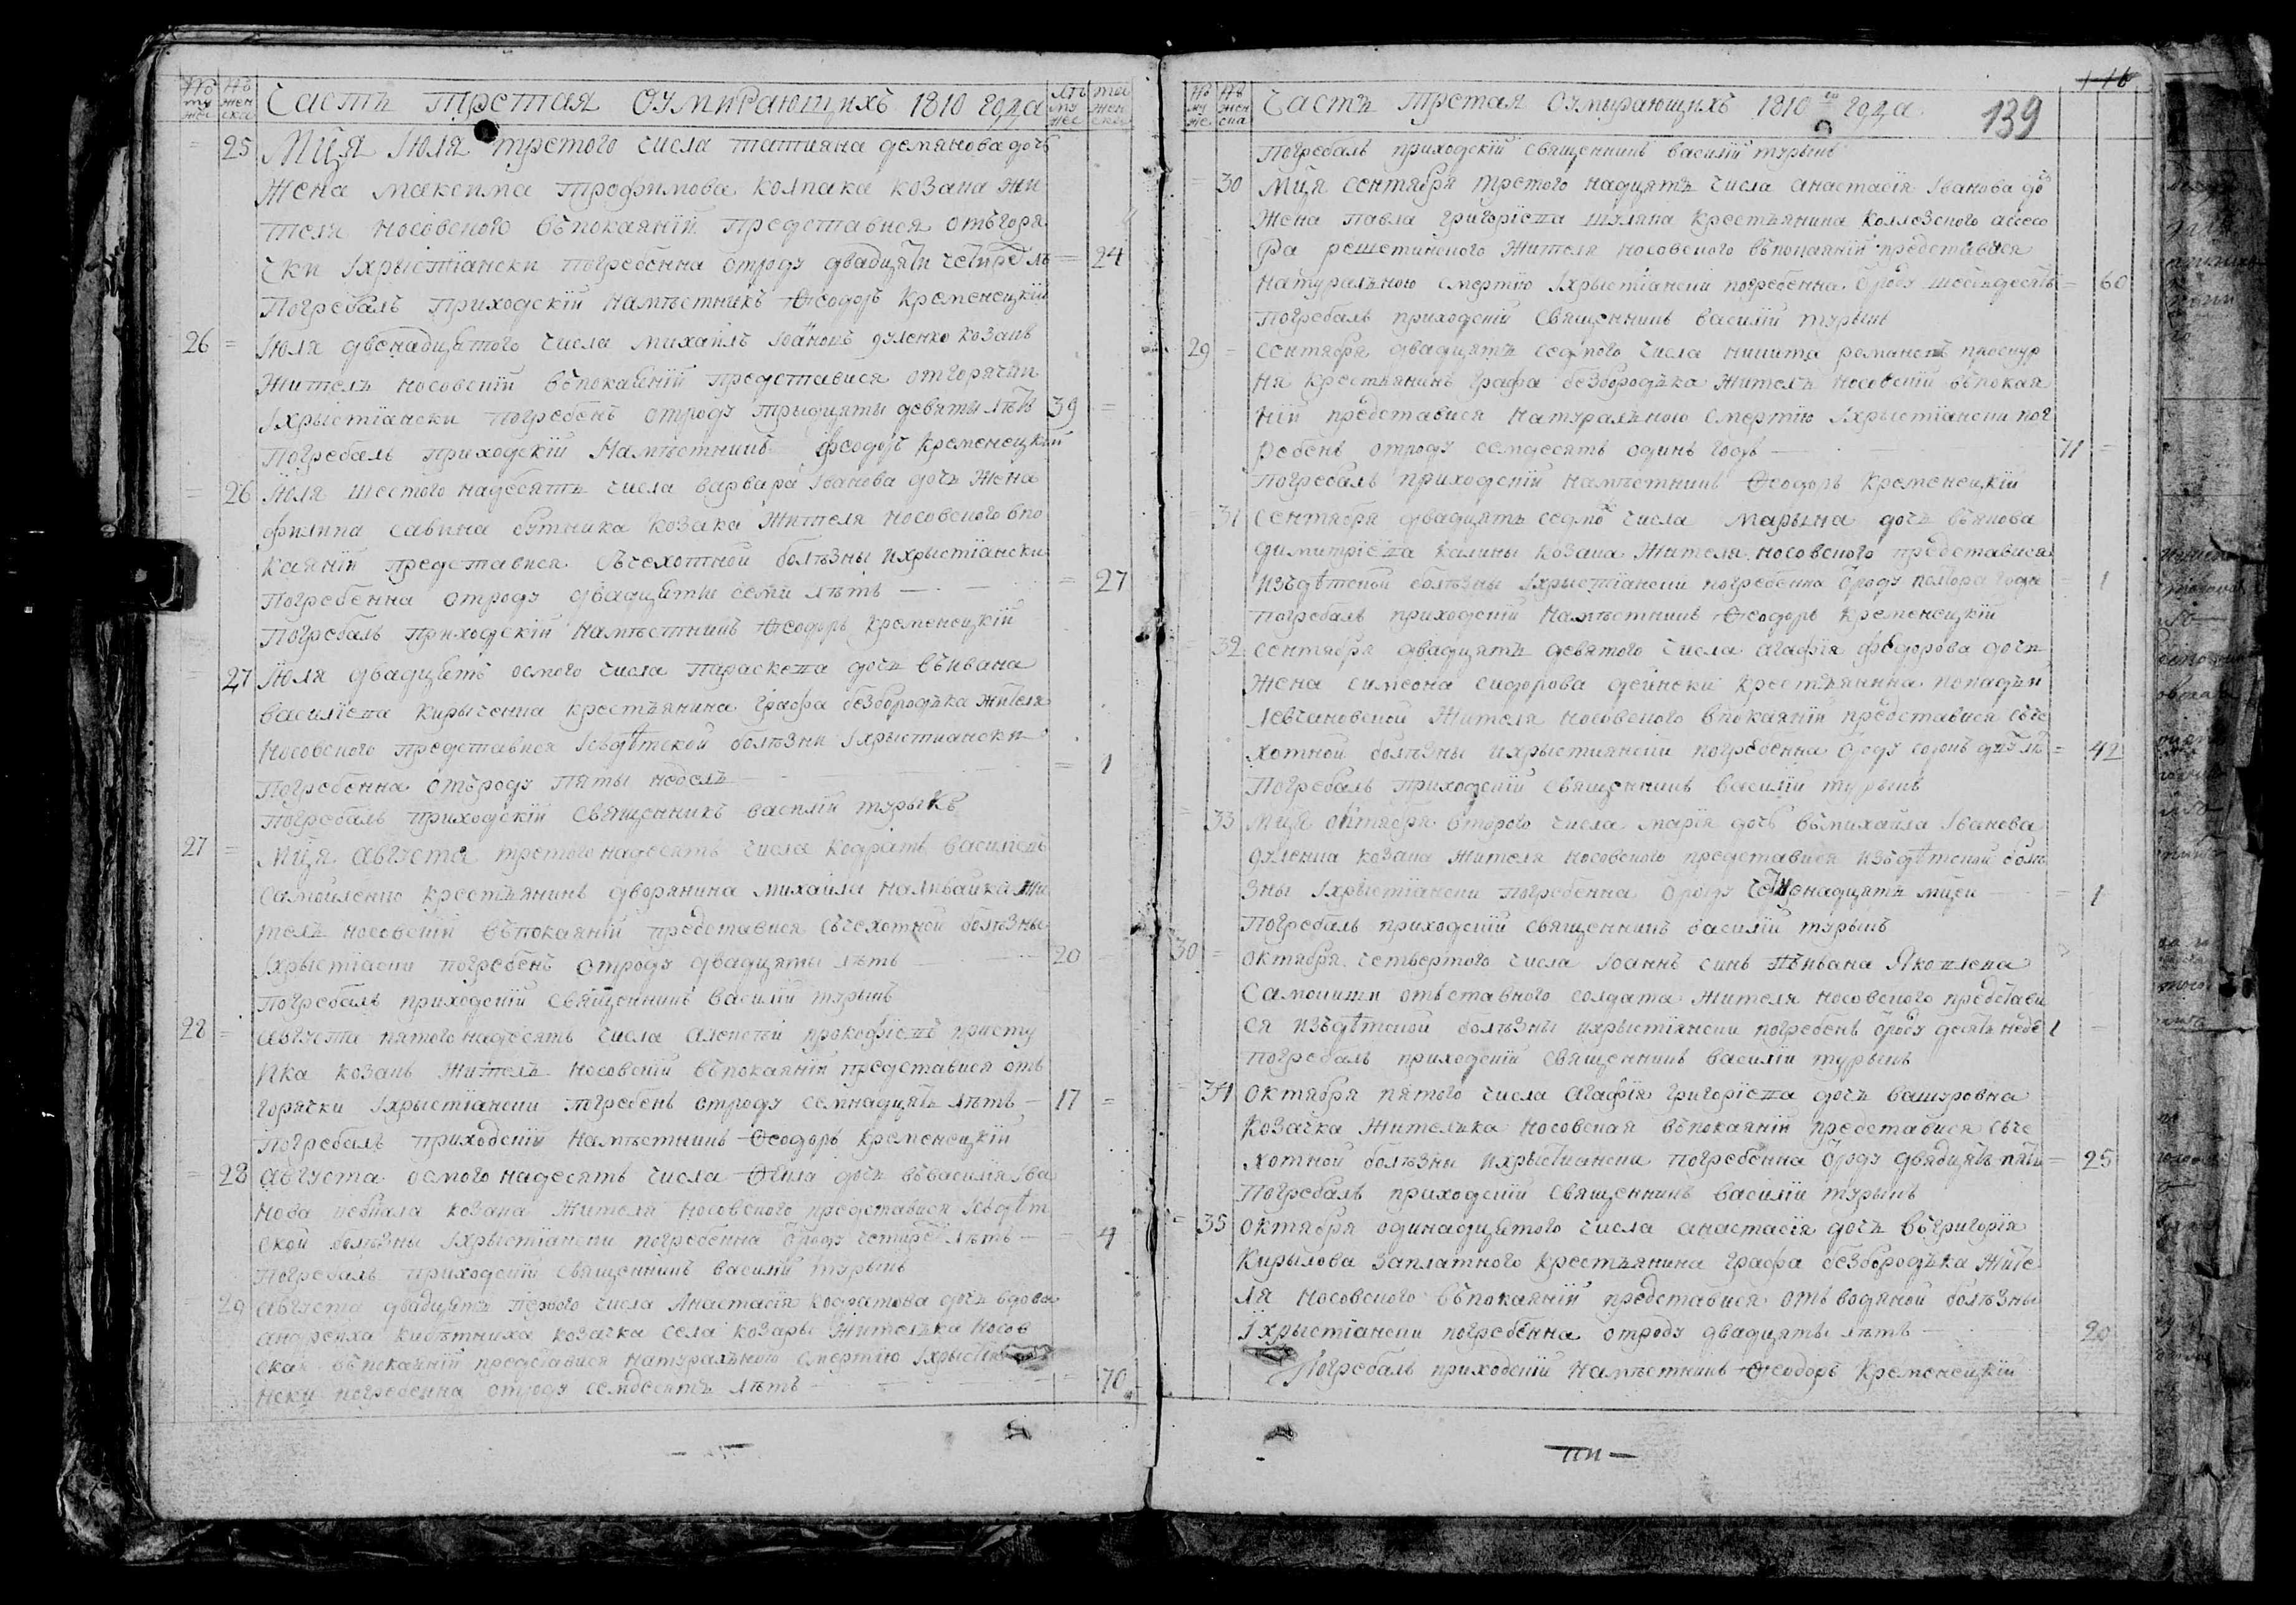 Часть третая Оумирающихъ 1810 года
25 Мца Июля третого числа татияна демянова дочь
Жена максима трофимова колпака козака жи
теля носовского въпокаянїи представися отъгоря
чки Iхрыстїански погребенна отроду двадцяти четире лѣ 24
Погребалъ приходскїй намѣстникъ Ѳеодоръ Кременецкїй
26 Июля двенадцятого числа михаилъ Iвановъ дуленко козакъ
Жителъ носовскїй въпокаянїи представися отгорячки
Iхрыстїански погребенъ отроду трыдцяты девяты лѣтъ 39
Погребалъ приходскїй Намѣстникъ феодоръ Кременецкїй
26 Июля шестого надесять числа варвара Iванова дочь Жена
филипа савина бутника козака Жителя носовского впо
каянїи представися съчехотной болѣзны ихрыстїански
Погребенна отроду двадцяты семи лѣтъ 27
Погребалъ приходскїй намѣстникъ Ѳеодоръ Кременецкїй
27 Июля двадцять осмого числа параскева дочь въивана
василїева Кирыченка крестъянина графа безбородъка жителя
Носовского представися Iсъдѣтской болѣзни Iхрыстиански
Погребенна отъроду пяты неделъ 1
Погребалъ приходскїй священникъ василїй турыкъ
27 Мца Августа третого надесять числа кодратъ василїевъ
Самойленко крестъянинъ дворянина михайла наливайка жи
телъ носовскїй въпокаянїи представися съчехотной болѣзны
Iхрыстїаски погребенъ отроду двадцяты лѣтъ 20
Погребалъ приходскїй священникъ василїй турыкъ
28 Августа пятого надесять числа алексїй прокофїевъ присту
пка козакъ Жителъ носовскїй въпокаянїи представися отъ
горячки Iхрыстїански погребенъ отроду семнадцять лѣтъ 17
Погребалъ приходскїй намѣстникъ Ѳеодоръ Кременецкїй
28 Августа осмого надесять числа Ѳекла дочь въвасилїя Iва
нова козака Жителя носовского представися Iсъдѣт
ской болѣзны Iхрыстїански погребенна отроду четире лѣтъ 4
Погребалъ приходскїй священникъ василїй турыкъ
29 Августа двадцять первого числа Анастасїя кодратова дочь вдова
козачка села козары Жителъка носов
ская въпокаянїи представися натуралъною смертїю Iхрыстїа
нски погребенна отроду семдесять лѣтъ 70
Часть третая Оумирающихъ 1810го года 139
Погребалъ приходскїй священникъ василїй турыкъ
30 Мця Сентября третого надцять числа анастасїя Iванова дочь
Жена павла григорїева шуляка крестъянина коллезского ассесо
ра решетинского Жителя носовского въпокаянїи представися
натуралъною смертїю Iхрыстїански погребенна отроду шестьдесять 60
Погребалъ приходскїй священникъ василїй турыкъ
29 Сентября двадцять седмого числа никита романовъ проскур
ня крестьянинъ графа безбородъка жителъ носовскїй въпокая
нїи представися натуралъною смертїю Iхрыстїански пог
ребенъ отроду семдесять одинъ годъ 71
Погребалъ приходскїй намѣстникъ Ѳеодоръ Кременецкїй
31 Сентября двадцять седмо числа Марына дочь въякова
димитрїева калины козака Жителя носовского представися
изъдѣтской болѣзны Iхрыстїански погребенна отроду полтора годы 1
Погребалъ приходскїй намѣстникъ Ѳеодоръ Кременецкїй
32 Сентября двадцять девятого числа агафїя федорова дочь
Жена симеона сидорова дейнеки крестъянина попадъи
Левчановской Жителя носовского впокаянїи представися съче
хотной болѣзны ихрыстиянски погребенна отроду сорокъ два лѣ 42
Погребалъ приходскїй священникъ василїй турыкъ
33 Мця октября второго числа марїя дочь въмихайла Iванова
дуленка козака жителя носовского представися изъдѣтской болѣ
зны Iхрыстїански погребенна отроду мцей 1
Погребалъ приходскїй священникъ василїй турыкъ
30 октября четвертого числа Iоаннъ синъ въивана Яковлева
Самошки отъставного солдата Жителя носовского представи
ся изъдѣтской болѣзны ихрыстїянски погребенъ отроду десять неде 1
погребалъ приходскїй священникъ василїй турыкъ
34 Октября пятого числа Агафїя григорїева дочь вашуровна
козачка жителъка носовская въпокаянїи представися съче
хотной болѣзны ихрыстиански погребенна отроду двядцять пять 25
Погребалъ приходскїй священникъ василїй турыкъ
35 Октября одинадцятого числа анастасїя дочь въгригорїя
Кирылова заплатного крестъянина графа безбородъка жите
ля носовского въпокаянїи представися отъ водяной болѣзны
Iхрыстїански погребенна отроду двадцяты лѣтъ 20
Погребалъ приходскїй намѣстникъ Ѳеодоръ Кременецкїй